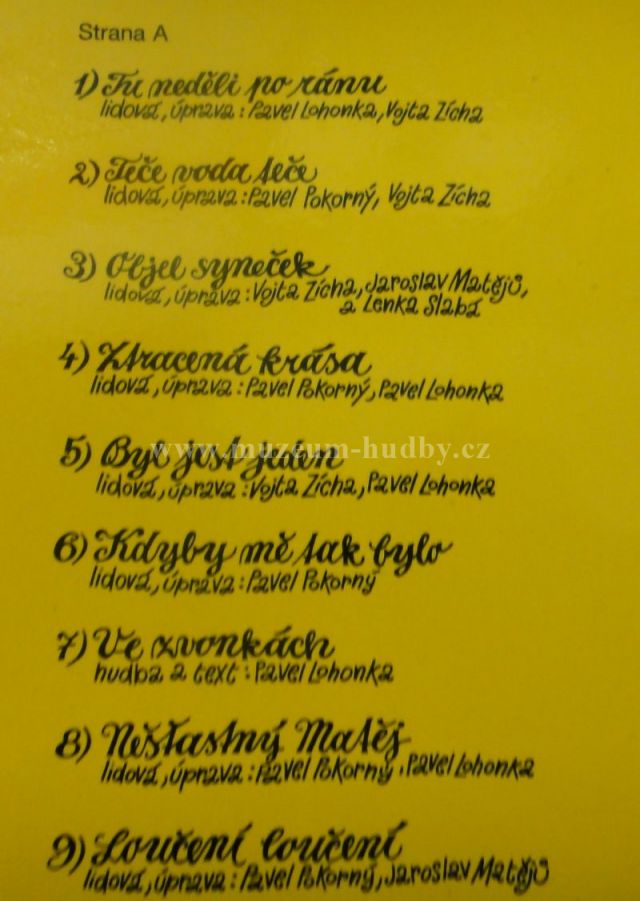 Strana A
1) Tu neděli po ránu
lidová, úprava: Pavel Lohonka, Vojta Zícha
2) Teče voda teče
lidová, úprava: Pavel Pokorný, Vojta Zícha
3) Objel syneček
lidová, úprava: Vojta Zícha, Jaroslav Matějů,
a Lenka Slabá
4) Ztracená krása
lidová, úprava: Pavel Pokorný, Pavel Lohonka
www.muzeum-hudby.cz
5) Byl jest jeden
lidová, úprava: Vojta Zícha, Pavel Lohonka
6) Kdyby mě tak bylo
lidová, úprava: Pavel Pokorný
7) Ve zvonkách
hudba a text: Pavel Lohonka
8) Nešťastný Matěj
lidová, úprava: Pavel Pokorný, Pavel Lohonka
9) Loučení loučení
lidová, úprava: Pavel Pokorný, Jaroslav Matějů